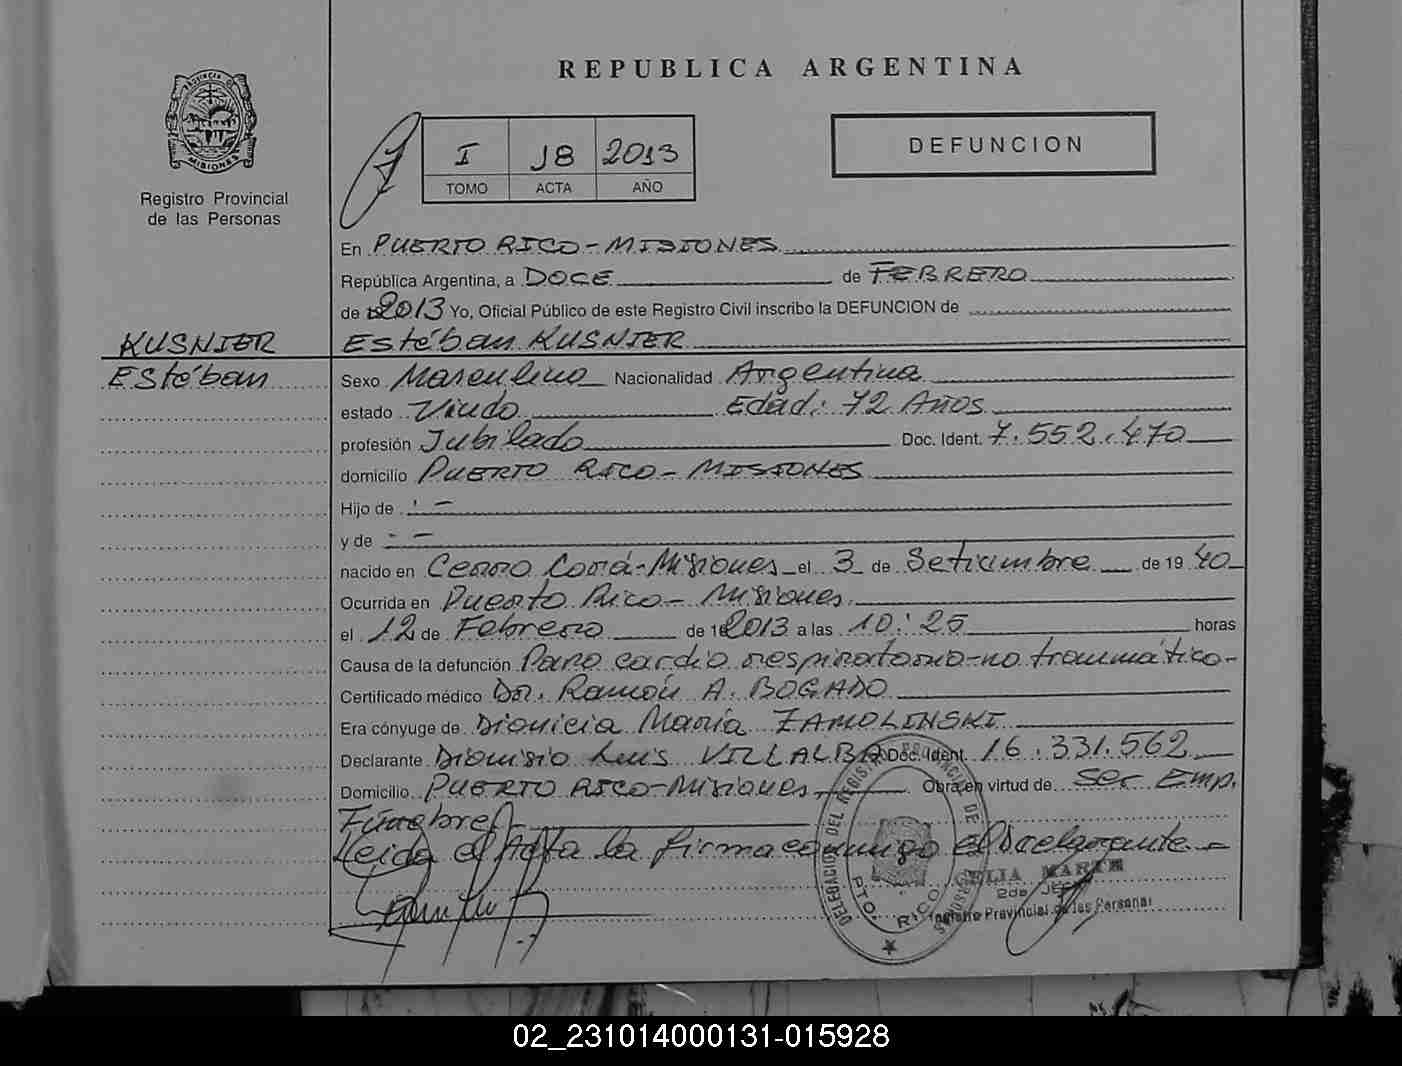 REPUBLICA ARGENTINA
PROVINCIA DE
MISIONES
Registro Provincial
de las Personas
I J8 2013
TOMO ACTA AÑO
DEFUNCION
En PUERTO RICO - MISIONES
República Argentina, a DOCE de FEBRERO
de 2013 Yo, Oficial Público de este Registro Civil inscribo la DEFUNCION de
KUSNIER
Estéban
Estéban KUSNIER
Sexo Masculino Nacionalidad Argentina
estado Viudo Edad: 72 Años
profesión Jubilado Doc. Ident. 7.552.470
domicilio PUERTO RICO - MISIONES
Hijo de -
y de - -
nacido en Cerro Corá - Misiones el 3 de Setiembre de 19 40
Ocurrida en Puerto Rico - Misiones
el 12 de Febrero de 2013 a las 10:25 horas
Causa de la defunción Paro cardio respiratorio - no traumático -
Certificado médico Dr. Ramón A. BOGADO
Era cónyuge de Dionicia María ZAMOLINSKI
Declarante Dionisio Luis VILLALBA Doc. Ident. 16.331.562
Domicilio PUERTO RICO - Misiones Obra en virtud de Ser Emp.
Fúnebre
Leida el Acta la firma conmigo el Declarante -
DELEGACION DEL REGISTRO PROVINCIAL DE LAS PERSONAS
PTO. RICO
MARTH
2da JEFE
Registro Provincial de las Personas
02_231014000131-015928